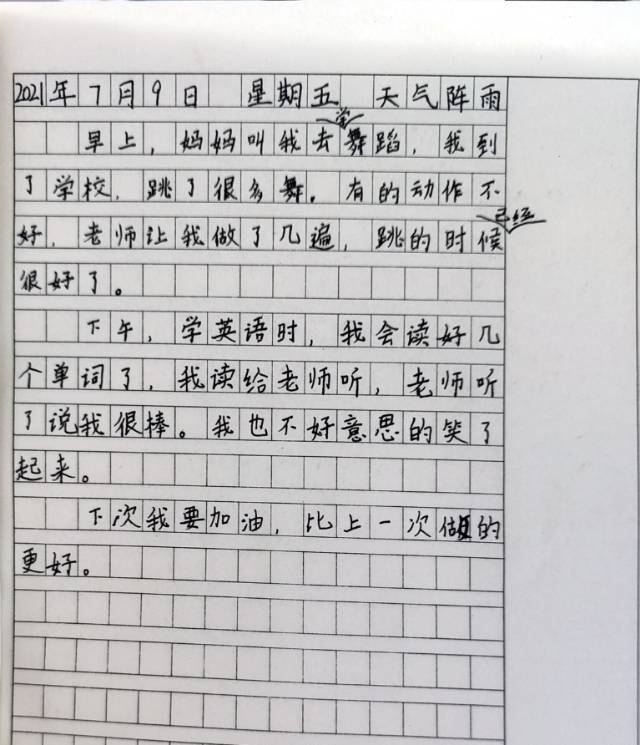 2021年7月9日 星期五 天气阵雨
早上，妈妈叫我去学舞蹈，我到
了学校，跳了很多舞。有的动作不
好，老师让我做了几遍，跳的时候已经
很好了。
下午，学英语时，我会读好几
个单词了，我读给老师听，老师听
了说我很棒。我也不好意思的笑了
起来。
下次我要加油，比上一次做的
更好。